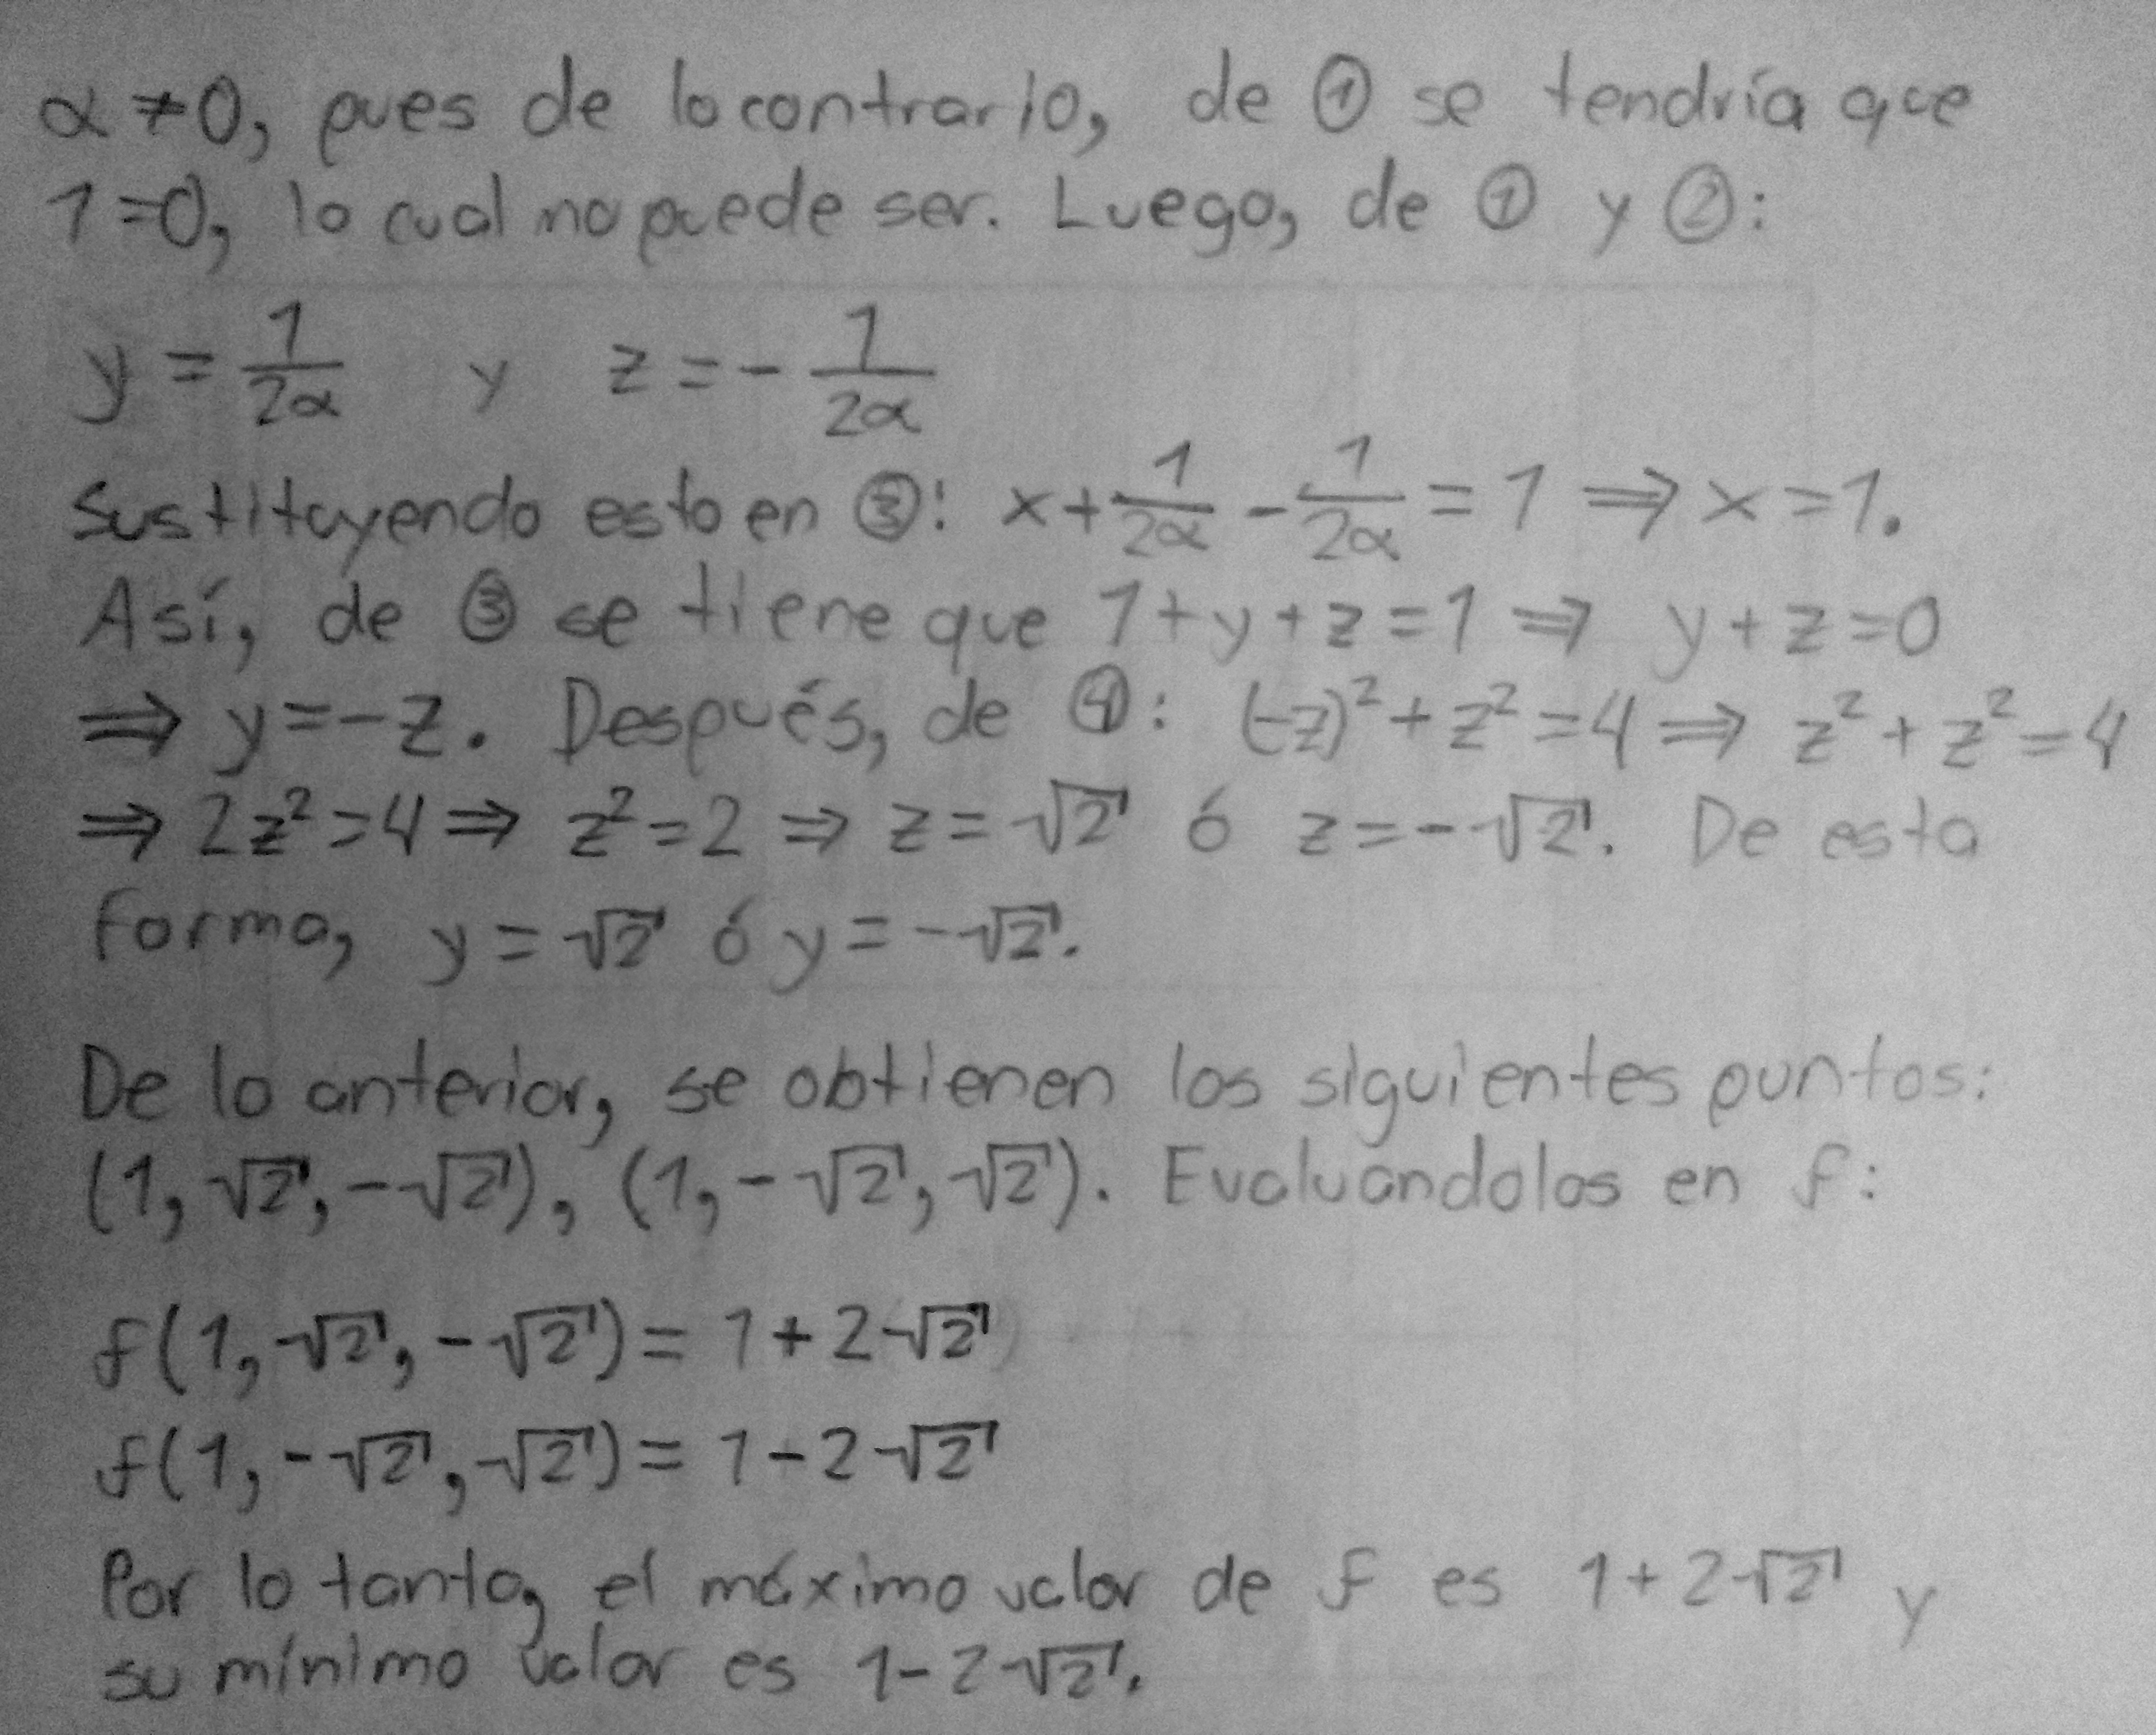 α ≠ 0, pues de lo contrario, de ① se tendría que
1 = 0, lo cual no puede ser. Luego, de ① y ②:
y = 1/2α y z = - 1/2α
Sustituyendo esto en ③: x + 1/2α - 1/2α = 1 ⇒ x = 1.
Así, de ③ se tiene que 1 + y + z = 1 ⇒ y + z = 0
⇒ y = -z. Después, de ④: (-z)² + z² = 4 ⇒ z² + z² = 4
⇒ 2z² = 4 ⇒ z² = 2 ⇒ z = √2 ó z = -√2. De esta
forma, y = √2 ó y = -√2.
De lo anterior, se obtienen los siguientes puntos:
(1, √2, -√2), (1, -√2, √2). Evaluándolos en f:
f(1, √2, -√2) = 1 + 2√2
f(1, -√2, √2) = 1 - 2√2
Por lo tanto, el máximo valor de f es 1 + 2√2 y
su mínimo valor es 1 - 2√2.